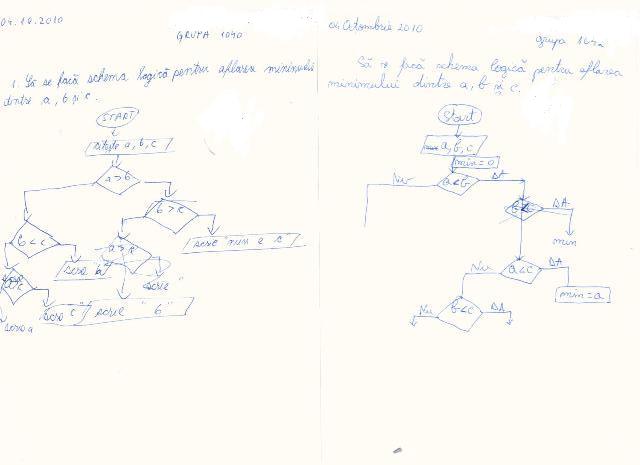 04.10.2010
GRUPA 1040
1. Să se facă schema logică pentru aflarea minimului
dintre a, b și c.
START
citește a, b, c
a>b
b>c
b<c
a>c
scrie "min e c"
scrie b
scrie "
scrie c
scrie " b "
scrie a
04 Octombrie 2010
grupa
Să se facă schema logică pentru aflarea
minimului dintre a, b și c.
Start
a, b, c
min=0
Nu
a<b
DA
DA
min
Nu
a<c
DA
min=a
Nu
b<c
DA